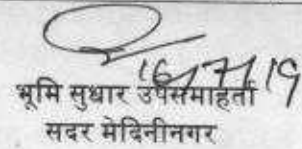 16/7/19
भूमि सुधार उपसमाहर्ता
सदर मेदिनीनगर